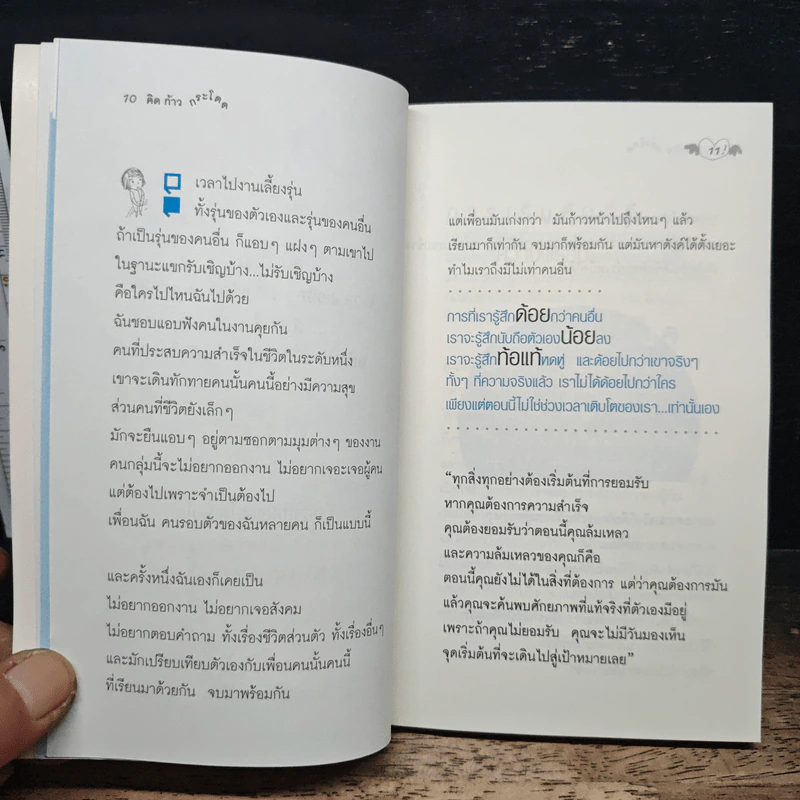 10 คิด ก้าว กระโดด
เวลาไปงานเลี้ยงรุ่น
ทั้งรุ่นของตัวเองและรุ่นของคนอื่น
ถ้าเป็นรุ่นของคนอื่น ก็แอบๆ แฝงๆ ตามเขาไป
ในฐานะแขกรับเชิญบ้าง...ไม่รับเชิญบ้าง
คือใครไปไหนฉันไปด้วย
ฉันชอบแอบฟังคนในงานคุยกัน
คนที่ประสบความสำเร็จในชีวิตในระดับหนึ่ง
เขาจะเดินทักทายคนนั้นคนนี้อย่างมีความสุข
ส่วนคนที่ชีวิตยังเล็กๆ
มักจะยืนแอบๆ อยู่ตามซอกตามมุมต่างๆ ของงาน
คนกลุ่มนี้จะไม่อยากออกงาน ไม่อยากเจอะเจอผู้คน
แต่ต้องไปเพราะจำเป็นต้องไป
เพื่อนฉัน คนรอบตัวของฉันหลายคน ก็เป็นแบบนี้
และครั้งหนึ่งฉันเองก็เคยเป็น
ไม่อยากออกงาน ไม่อยากเจอสังคม
ไม่อยากตอบคำถาม ทั้งเรื่องชีวิตส่วนตัว ทั้งเรื่องอื่นๆ
และมักเปรียบเทียบตัวเองกับเพื่อนคนนั้นคนนี้
ที่เรียนมาด้วยกัน จบมาพร้อมกัน
11!
แต่เพื่อนมันเก่งกว่า มันก้าวหน้าไปถึงไหนๆ แล้ว
เรียนมาก็เท่ากัน จบมาก็พร้อมกัน แต่มันหาตังค์ได้ตั้งเยอะ
ทำไมเราถึงมีไม่เท่าคนอื่น
การที่เรารู้สึกด้อยกว่าคนอื่น
เราจะรู้สึกนับถือตัวเองน้อยลง
เราจะรู้สึกท้อแท้หดหู่ และด้อยไปกว่าเขาจริงๆ
ทั้งๆ ที่ความจริงแล้ว เราไม่ได้ด้อยไปกว่าใคร
เพียงแต่ตอนนี้ไม่ใช่ช่วงเวลาเติบโตของเรา...เท่านั้นเอง
“ทุกสิ่งทุกอย่างต้องเริ่มต้นที่การยอมรับ
หากคุณต้องการความสำเร็จ
คุณต้องยอมรับว่าตอนนี้คุณล้มเหลว
และความล้มเหลวของคุณก็คือ
ตอนนี้คุณยังไม่ได้ในสิ่งที่ต้องการ แต่ว่าคุณต้องการมัน
แล้วคุณจะค้นพบศักยภาพที่แท้จริงที่ตัวเองมีอยู่
เพราะถ้าคุณไม่ยอมรับ คุณจะไม่มีวันมองเห็น
จุดเริ่มต้นที่จะเดินไปสู่เป้าหมายเลย”